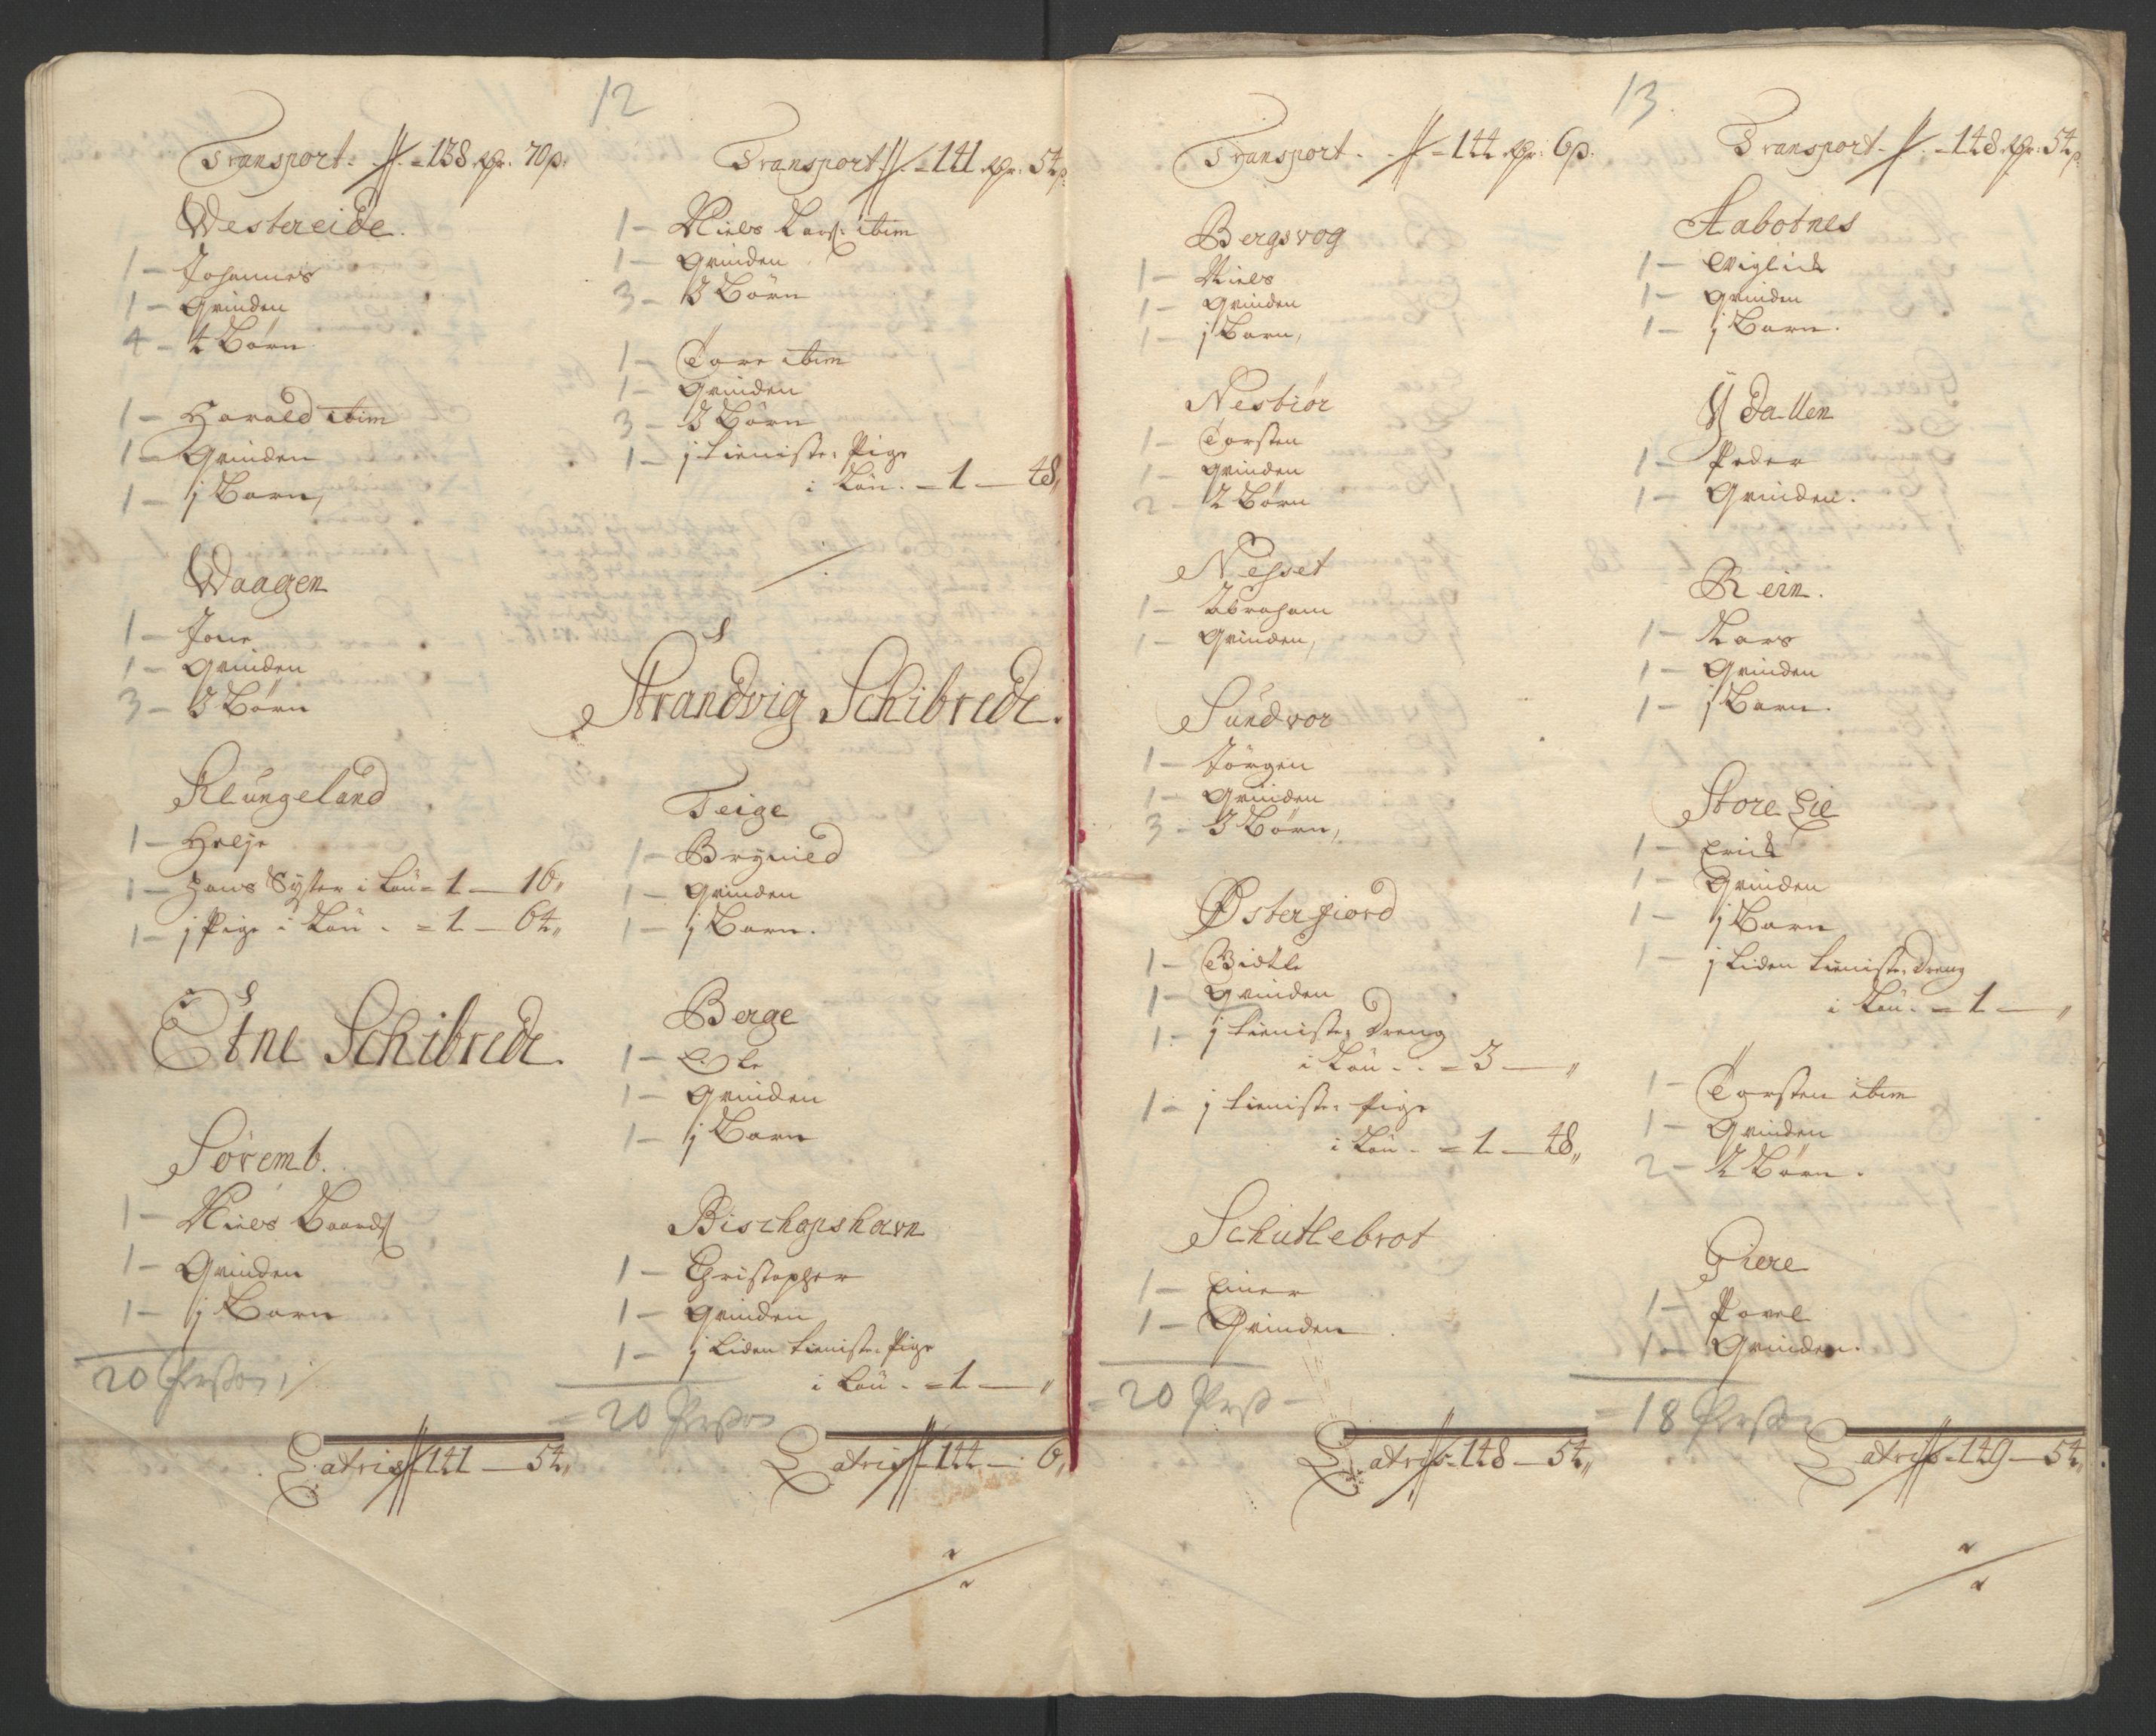 12
Transport. 138 Rdr. 70 s:
Westereide.
1 — Johannes
1 — Qvinden
4 — 4 Börn
1 — Harald ibim
1 — Qvinden
1 — j Barn,
Waagen
1 — Jone
1 — Qvinden
3 — 3 Börn
Klungeland
1 — Helje
1 — Hans Syster i Lön = 1 — 16,,
1 — j Pige i Lön . = 1 — 64,,
Etne Schibrede.
Söremb.
1 — Niels Baards
1 — Qvinden
1 — j Barn
20 Person
Latris 141 — 54,,
Transport 141 Rdr: 54 s
1 — Niels Lars: ibim
1 — Qvinden
3 — 3 Börn
1 — Tore ibim
1 — Qvinden
3 — 3 Börn
1 — j tieniste Pige
i Lön. = 1 — 48,,
Strandvig Schibrede.
Teige
1 — Brynild
1 — Qvinden
1 — j Barn.
Berge
1 — Ole
1 — Qvinden
1 — j Barn
Bischopshavn
1 — Christopher
1 — Qvinden
1 — j liden tieniste Pige
i Lön . = 1 — ,,
= 20 Person
Latris 144 — 6,,
13.
Transport . 144 Rdr: 6 s.
Bergsvog
1 — Niels
1 — Qvinden
1 — j Barn,
Nesbiör
1 — Torsten
1 — Qvinden
2 — 2 Börn
Nesset
1 — Abraham
1 — Qvinden,
Sundvor
1 — Jörgen
1 — Qvinden
3 — 3 Börn,
Østerfiord
1 — Giötle
1 — Qvinden
1 — j tieniste Dreng
i Lön . . = 3 — ,,
1 — j tieniste Pige
i Lön . = 1 — 48,,
Schutlebrot
1 — Einer
1 — Qvinden
= 20 Pers —
Latris 148 — 54,,
Transport . 148 Rdr: 54 s
Aabotnes
1 — Viglich
1 — Qvinden
1 — j Barn.
Ÿdallen
1 — Peder
1 — Qvinden.
Rein.
1 — Lars
1 — Qvinden
1 — j Barn.
Store Lie
1 — Erich
1 — Qvinden
1 — j Barn
1 — j liden tieniste Dreng
i Lön. = 1 — ,,
1 — Torsten ibim
1 — Qvinden
2 — 2 Börn.
Giere
1 — Povel
1 — Qvinden.
= 18 Person
Latris 149 — 54,,